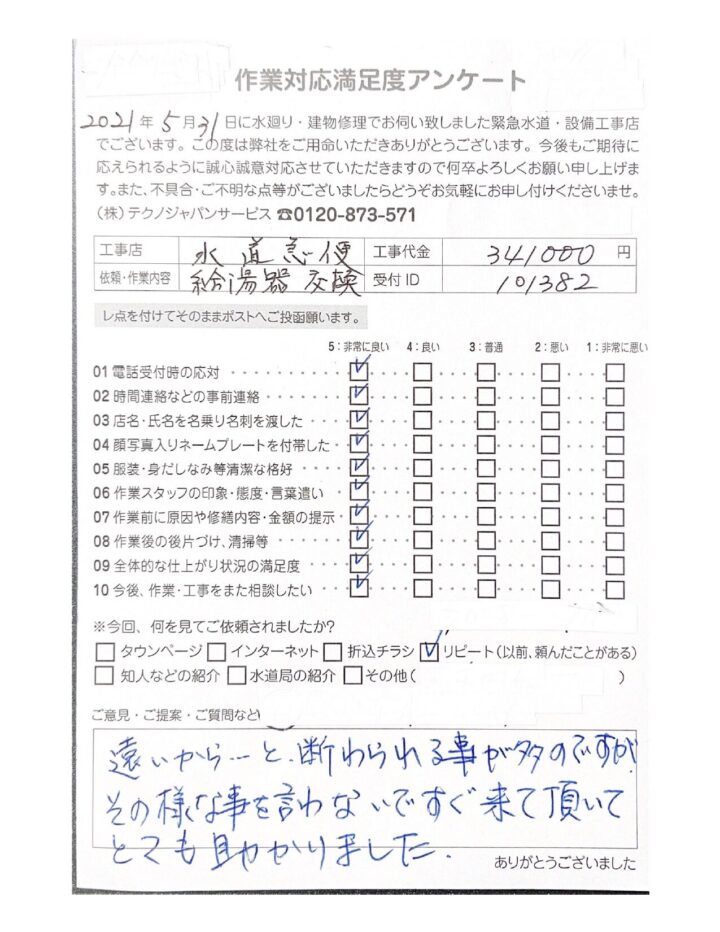 作業対応満足度アンケート
2021年5月31日に水廻り・建物修理でお伺い致しました緊急水道・設備工事店
でございます。この度は弊社をご用命いただきありがとうございます。今後もご期待に
応えられるように誠心誠意対応させていただきますので何卒よろしくお願い申し上げま
す。また、不具合・ご不明な点等がございましたらどうぞお気軽にお申し付けくださいませ。
(株)テクノジャパンサービス ☎0120-873-571
工事店 水道急便 工事代金 341000 円
依頼・作業内容 給湯器交換 受付ID 101382
レ点を付けてそのままポストへご投函願います。
5:非常に良い 4:良い 3:普通 2:悪い 1:非常に悪い
01 電話受付時の応対
02 時間連絡などの事前連絡
03 店名・氏名を名乗り名刺を渡した
04 顔写真入りネームプレートを付帯した
05 服装・身だしなみ等清潔な格好
06 作業スタッフの印象・態度・言葉遣い
07 作業前に原因や修繕内容・金額の提示
08 作業後の後片づけ、清掃等
09 全体的な仕上がり状況の満足度
10 今後、作業・工事をまた相談したい
※今回、何を見てご依頼されましたか?
タウンページ インターネット 折込チラシ リピート(以前、頼んだことがある)
知人などの紹介 水道局の紹介 その他( )
ご意見・ご提案・ご質問など
遠いから…と、断わられる事が多々のですが
その様な事を言わないですぐ来て頂いて
とても助かりました.
ありがとうございました